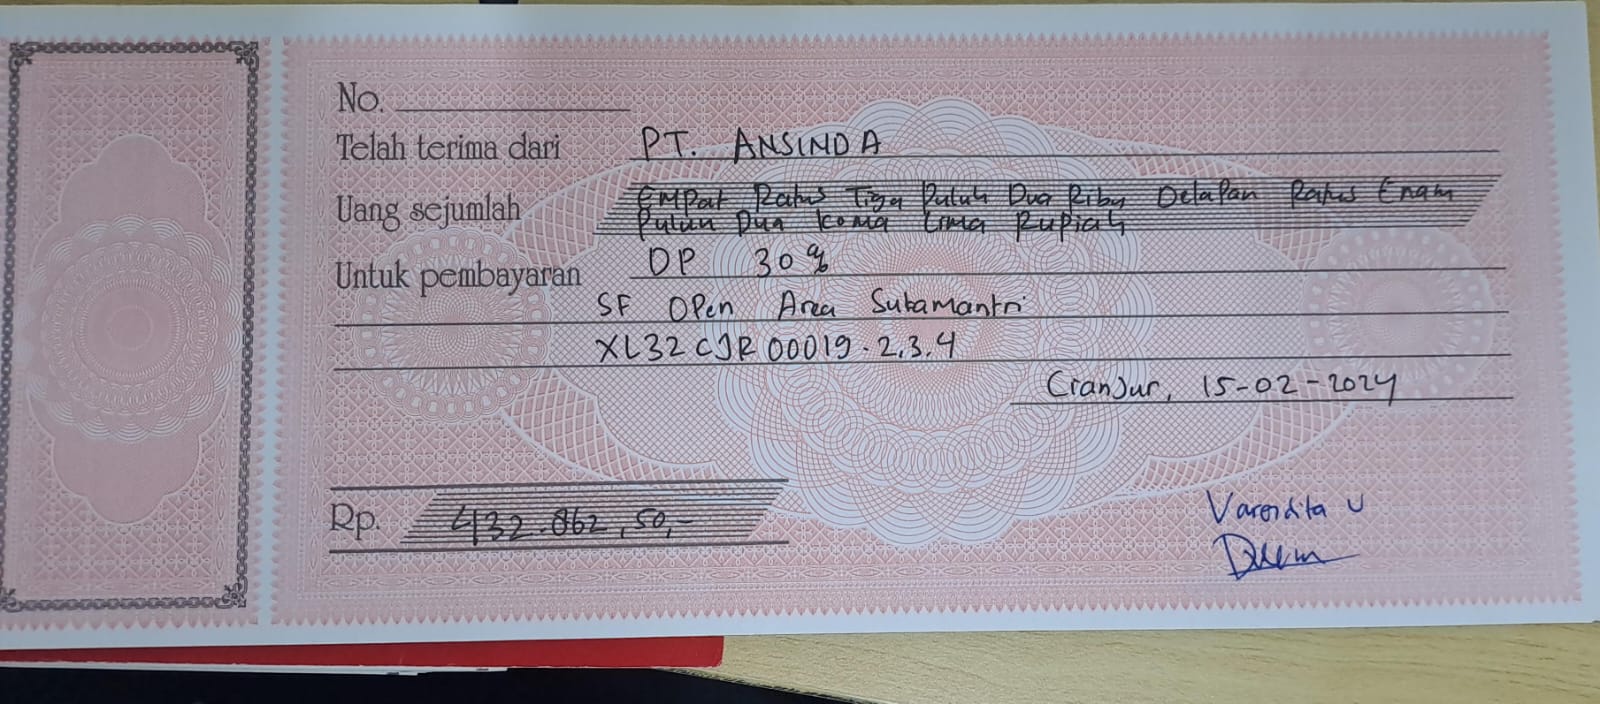 No.
Telah terima dari PT. ANSINDA
Uang sejumlah Empat Ratus Tiga Puluh Dua Ribu Delapan Ratus Enam
Puluh Dua Koma Lima Rupiah
Untuk pembayaran DP 30%
SF Open Area Sukamantri
XL32CJR00019-2,3,4
Cianjur, 15-02-2024
Rp. 432.862,50,-
Varendita U